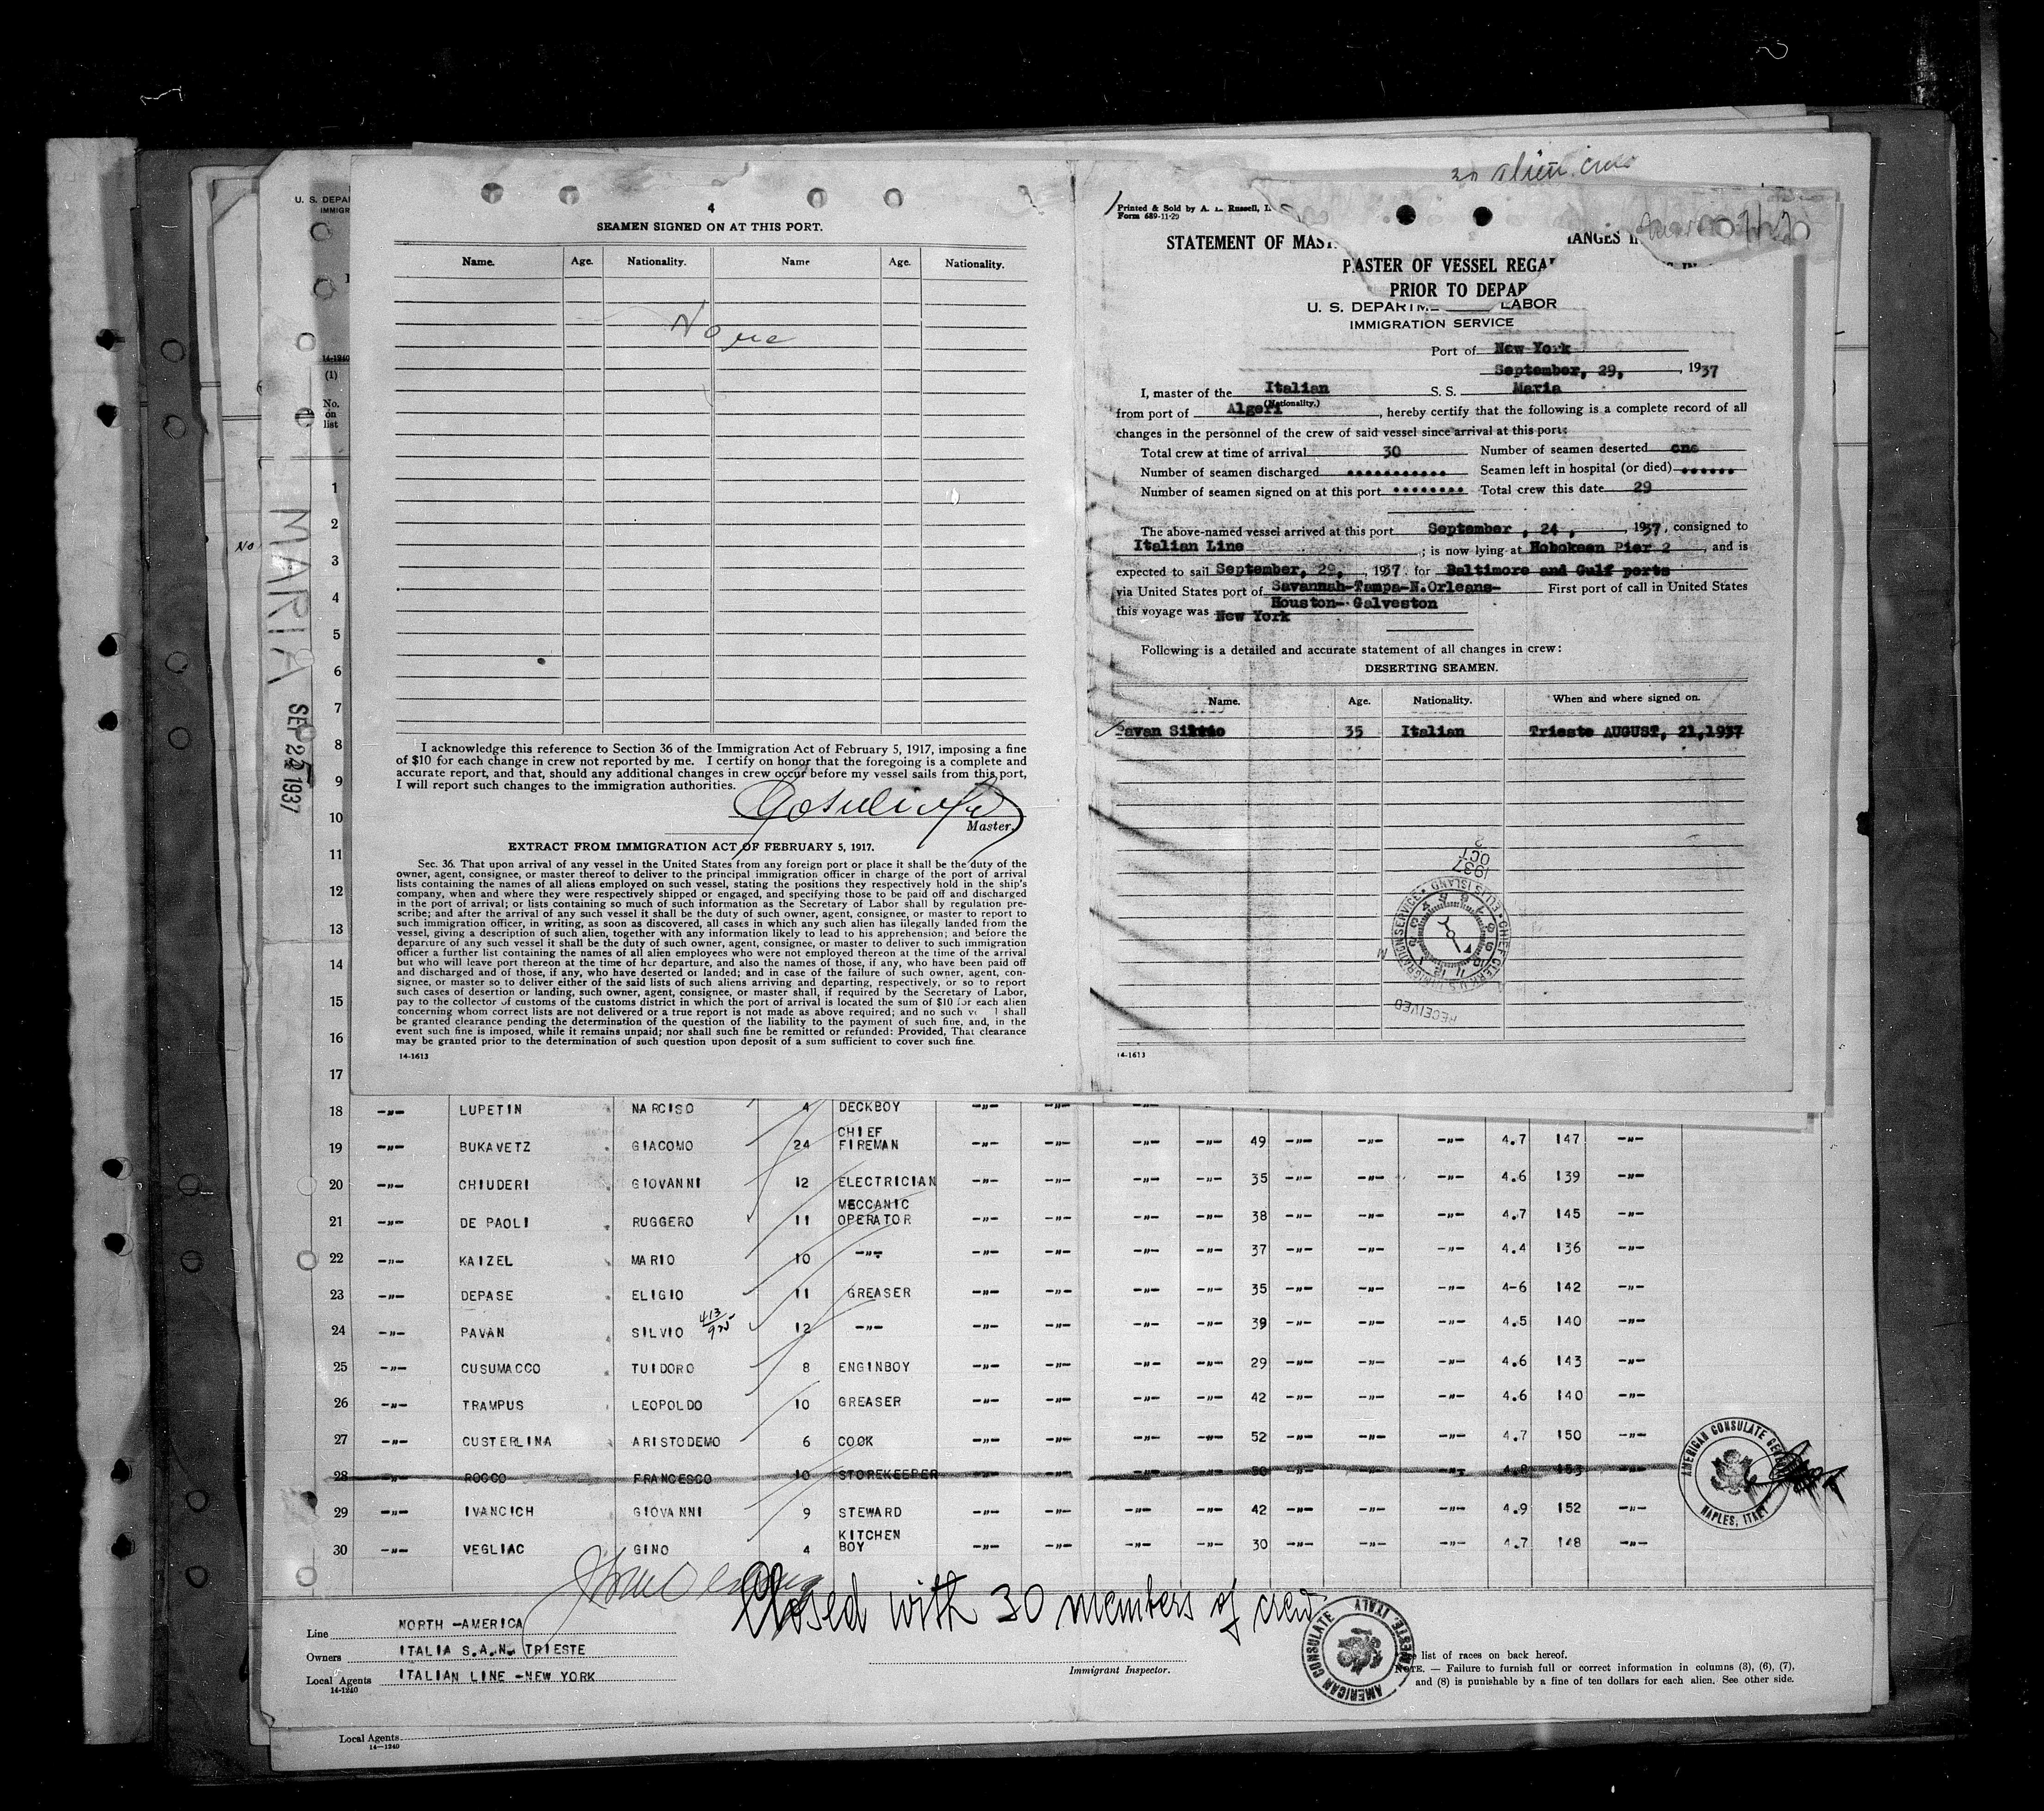 30 alien crew
U. S. DEPA
IMMIGR
14-1240
(1)
No.
on
list
No
MARIA
SEP 25 1937
4
SEAMEN SIGNED ON AT THIS PORT.
Name. Age. Nationality. Name Age. Nationality.
None
I acknowledge this reference to Section 36 of the Immigration Act of February 5, 1917, imposing a fine
of $10 for each change in crew not reported by me. I certify on honor that the foregoing is a complete and
accurate report, and that, should any additional changes in crew occur before my vessel sails from this port,
I will report such changes to the immigration authorities.
Master.
EXTRACT FROM IMMIGRATION ACT OF FEBRUARY 5, 1917.
Sec. 36. That upon arrival of any vessel in the United States from any foreign port or place it shall be the duty of the
owner, agent, consignee, or master thereof to deliver to the principal immigration officer in charge of the port of arrival
lists containing the names of all aliens employed on such vessel, stating the positions they respectively hold in the ship's
company, when and where they were respectively shipped or engaged, and specifying those to be paid off and discharged
in the port of arrival; or lists containing so much of such information as the Secretary of Labor shall by regulation pre-
scribe; and after the arrival of any such vessel it shall be the duty of such owner, agent, consignee, or master to report to
such immigration officer, in writing, as soon as discovered, all cases in which any such alien has illegally landed from the
vessel, giving a description of such alien, together with any information likely to lead to his apprehension; and before the
departure of any such vessel it shall be the duty of such owner, agent, consignee, or master to deliver to such immigration
officer a further list containing the names of all alien employees who were not employed thereon at the time of the arrival
but who will leave port thereon at the time of her departure, and also the names of those, if any, who have been paid off
and discharged and of those, if any, who have deserted or landed; and in case of the failure of such owner, agent, con-
signee, or master so to deliver either of the said lists of such aliens arriving and departing, respectively, or so to report
such cases of desertion or landing, such owner, agent, consignee, or master shall, if required by the Secretary of Labor,
pay to the collector of customs of the customs district in which the port of arrival is located the sum of $10 for each alien
concerning whom correct lists are not delivered or a true report is not made as above required; and no such ve l shall
be granted clearance pending the determination of the question of the liability to the payment of such fine, and, in the
event such fine is imposed, while it remains unpaid; nor shall such fine be remitted or refunded: Provided, That clearance
may be granted prior to the determination of such question upon deposit of a sum sufficient to cover such fine.
14-1613
Printed & Sold by A. L. Russell, I
Form 689-11-29
STATEMENT OF MAST ANGES I
MASTER OF VESSEL REGA IN
PRIOR TO DEPAR
U. S. DEPARTME LABOR
IMMIGRATION SERVICE
Port of New York
September, 29, , 1937
I, master of the Italian S. S. Maria
(Nationality.)
from port of Algeri , hereby certify that the following is a complete record of all
changes in the personnel of the crew of said vessel since arrival at this port:
Total crew at time of arrival 30 Number of seamen deserted one
Number of seamen discharged ........... Seamen left in hospital (or died) ......
Number of seamen signed on at this port ........ Total crew this date 29
The above-named vessel arrived at this port September , 24 , , 1937, consigned to
Italian Line ; is now lying at Hoboken Pier 2 , and is
expected to sail September, 29, , 1937. for Baltimore and Gulf ports
via United States port of Savannah-Tampa-N.Orleans- First port of call in United States
Houston- Galveston
this voyage was New York
Following is a detailed and accurate statement of all changes in crew:
DESERTING SEAMEN.
Name. Age. Nationality. When and where signed on.
Pavan Silvio 35 Italian Trieste AUGUST, 21,1937
1937
OCT
2
CHIEF CLERK U.S. IMMIGRATION SERVICE • ELLIS ISLAND •
RECEIVED
14-1613
1
2
3
4
5
6
7
8
9
10
11
12
13
14
15
16
17
18 -"- LUPETIN NARCISO 4 DECKBOY -"- -"- -"-
19 -"- BUKAVETZ GIACOMO 24 CHIEF FIREMAN -"- -"- -"- -"- 49 -"- -"- -"- 4.7 147 -"-
20 -"- CHIUDERI GIOVANNI 12 ELECTRICIAN -"- -"- -"- -"- 35 -"- -"- -"- 4.6 139 -"-
21 -"- DE PAOLI RUGGERO 11 MECCANIC OPERATOR -"- -"- -"- -"- 38 -"- -"- -"- 4.7 145 -"-
22 -"- KAIZEL MARIO 10 -"- -"- -"- -"- -"- 37 -"- -"- -"- 4.4 136 -"-
23 -"- DEPASE ELIGIO 11 GREASER -"- -"- -"- -"- 35 -"- -"- -"- 4-6 142 -"-
24 -"- PAVAN SILVIO 413/925 12 -"- -"- -"- -"- -"- 39 -"- -"- -"- 4.5 140 -"-
25 -"- CUSUMACCO TUIDORO 8 ENGINBOY -"- -"- -"- -"- 29 -"- -"- -"- 4.6 143 -"-
26 -"- TRAMPUS LEOPOLDO 10 GREASER -"- -"- -"- -"- 42 -"- -"- -"- 4.6 140 -"-
27 -"- CUSTERLINA ARISTODEMO 6 COOK -"- -"- -"- -"- 52 -"- -"- -"- 4.7 150 -"-
28 -"- ROCCO FRANCESCO 10 STOREKEEPER -"- -"- -"- -"- 50 -"- -"- -"- 4.8 153 -"-
29 -"- IVANCICH GIOVANNI 9 STEWARD -"- -"- -"- -"- 42 -"- -"- -"- 4.9 152 -"-
30 -"- VEGLIAC GINO 4 KITCHEN BOY -"- -"- -"- -"- 30 -"- -"- -"- 4.7 148 -"-
AMERICAN CONSULATE GENERAL
NAPLES, ITALY
Closed with 30 members of crew
AMERICAN CONSULATE
TRIESTE, ITALY
Line NORTH -AMERICA
Owners ITALIA S.A.N. TRIESTE
Local Agents ITALIAN LINE -NEW YORK
14-1240
Immigrant Inspector.
list of races on back hereof.
NOTE. — Failure to furnish full or correct information in columns (3), (6), (7),
and (8) is punishable by a fine of ten dollars for each alien. See other side.
Local Agents
14-1240